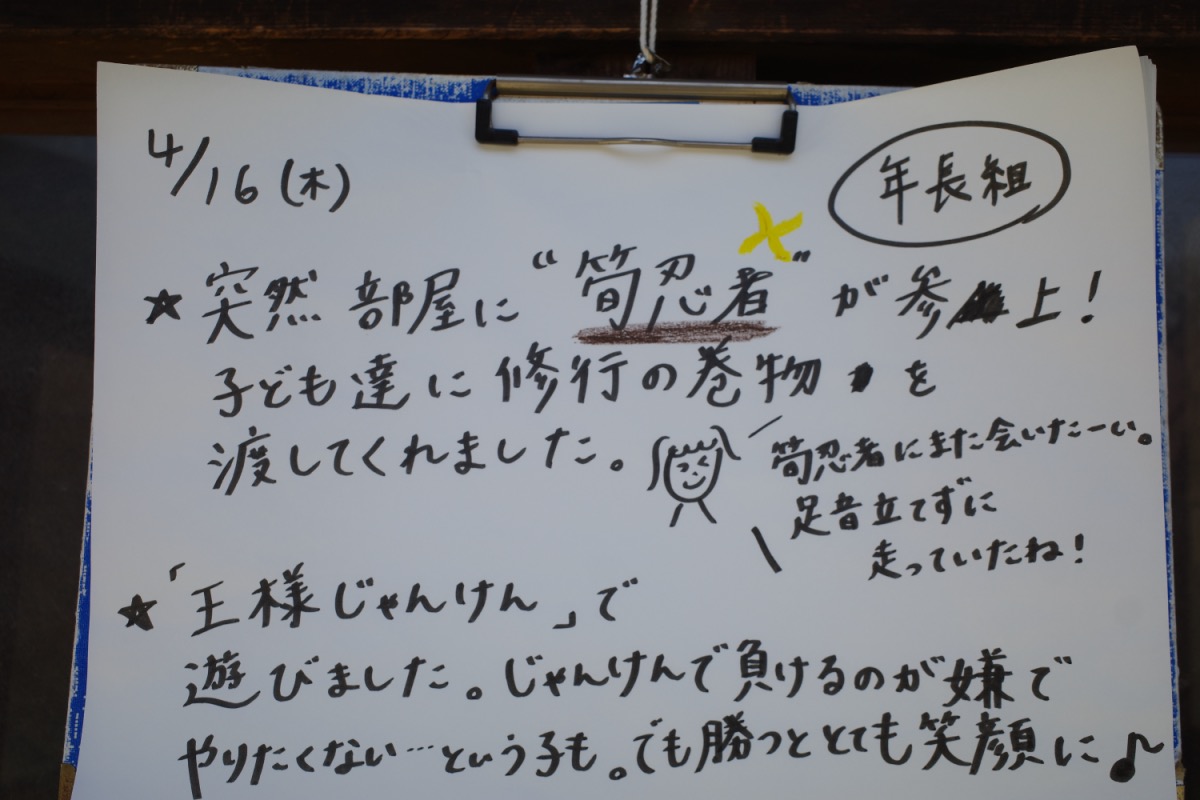 4/16(木)
年長組
★突然部屋に“筍忍者”が参上!
子ども達に修行の巻物を
渡してくれました。
筍忍者にまた会いたーい。
足音立てずに
走っていたね!
★「王様じゃんけん」で
遊びました。じゃんけんで負けるのが嫌で
やりたくない…という子も。でも勝つととても笑顔に♪